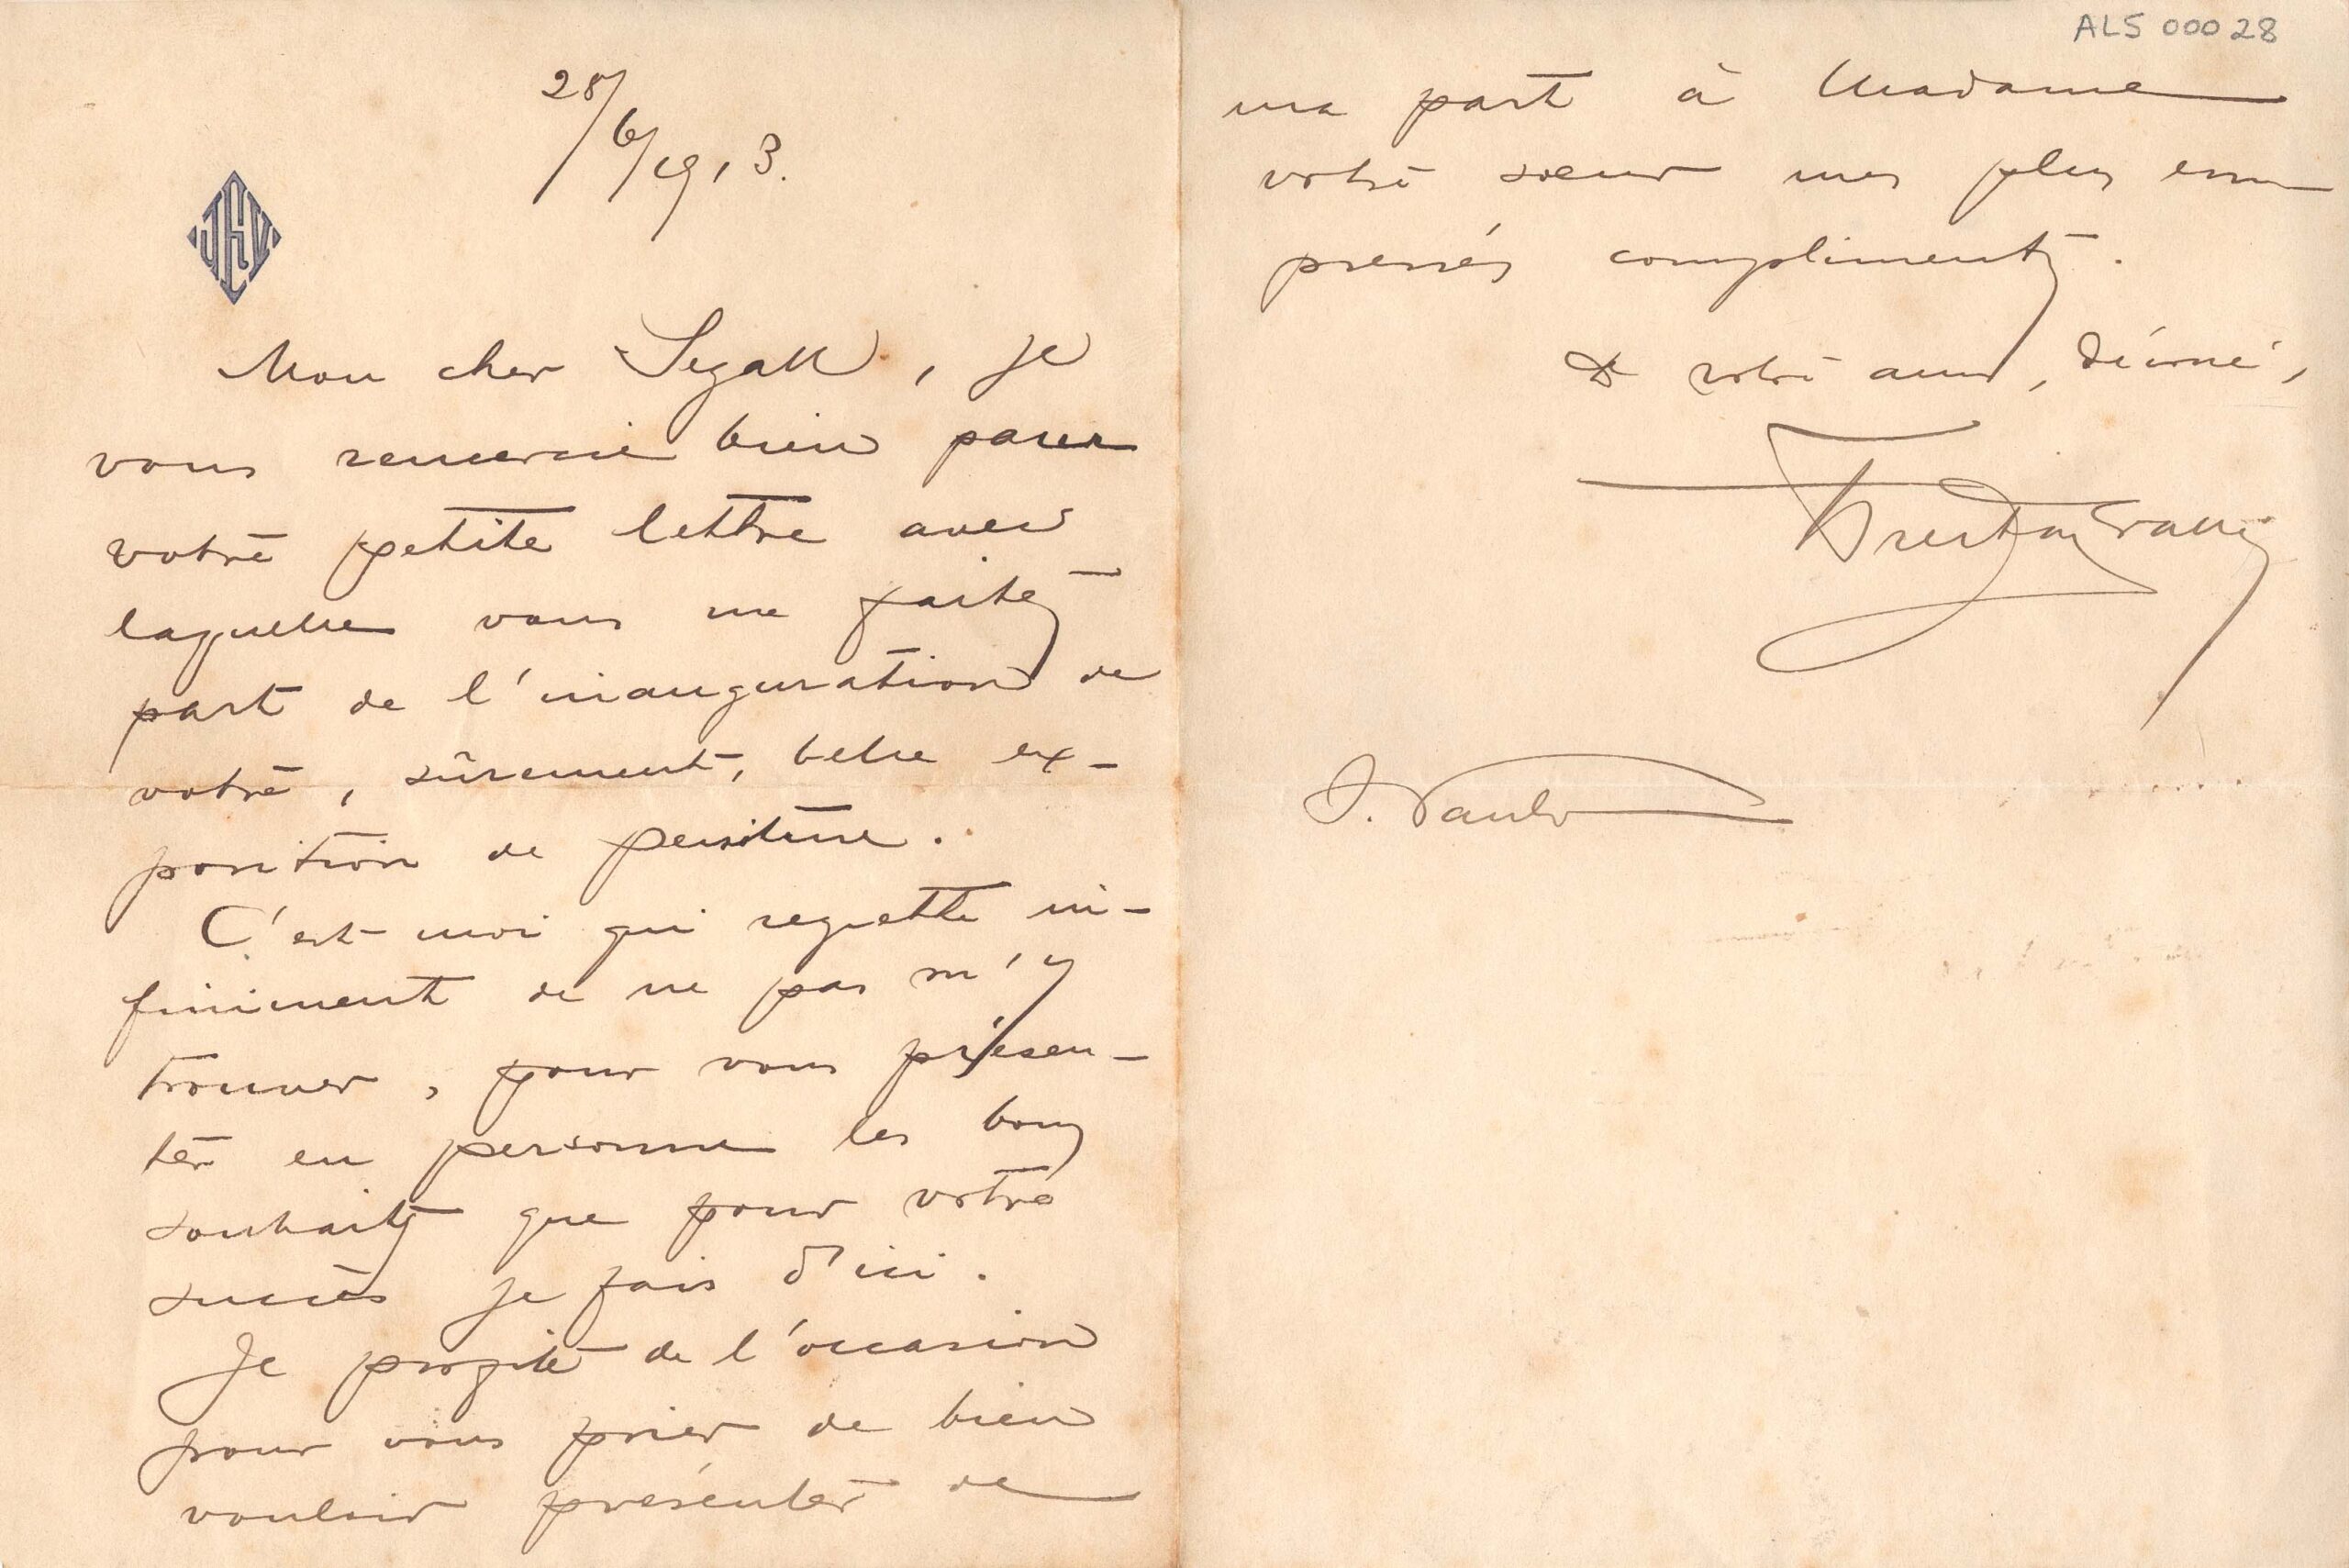 28/6/1913.
JHV
Mon cher Segall, je
vous remercie bien pour
votre petite lettre avec
laquelle vous me faites
part de l'inauguration de
votre, sûrement, belle ex-
position de peinture.
C'est moi qui regrette in-
finiment de ne pas m'y
trouver, pour vous présen-
ter en personne les bons
souhaits que pour votre
succès je fais d'ici.
Je profite de l'occasion
pour vous prier de bien
vouloir présenter de
ALS 00028
ma part à Madame
votre sœur mes plus em
pressés compliments.
votre ami, dévoué,
Freitas Valle
S. Paulo